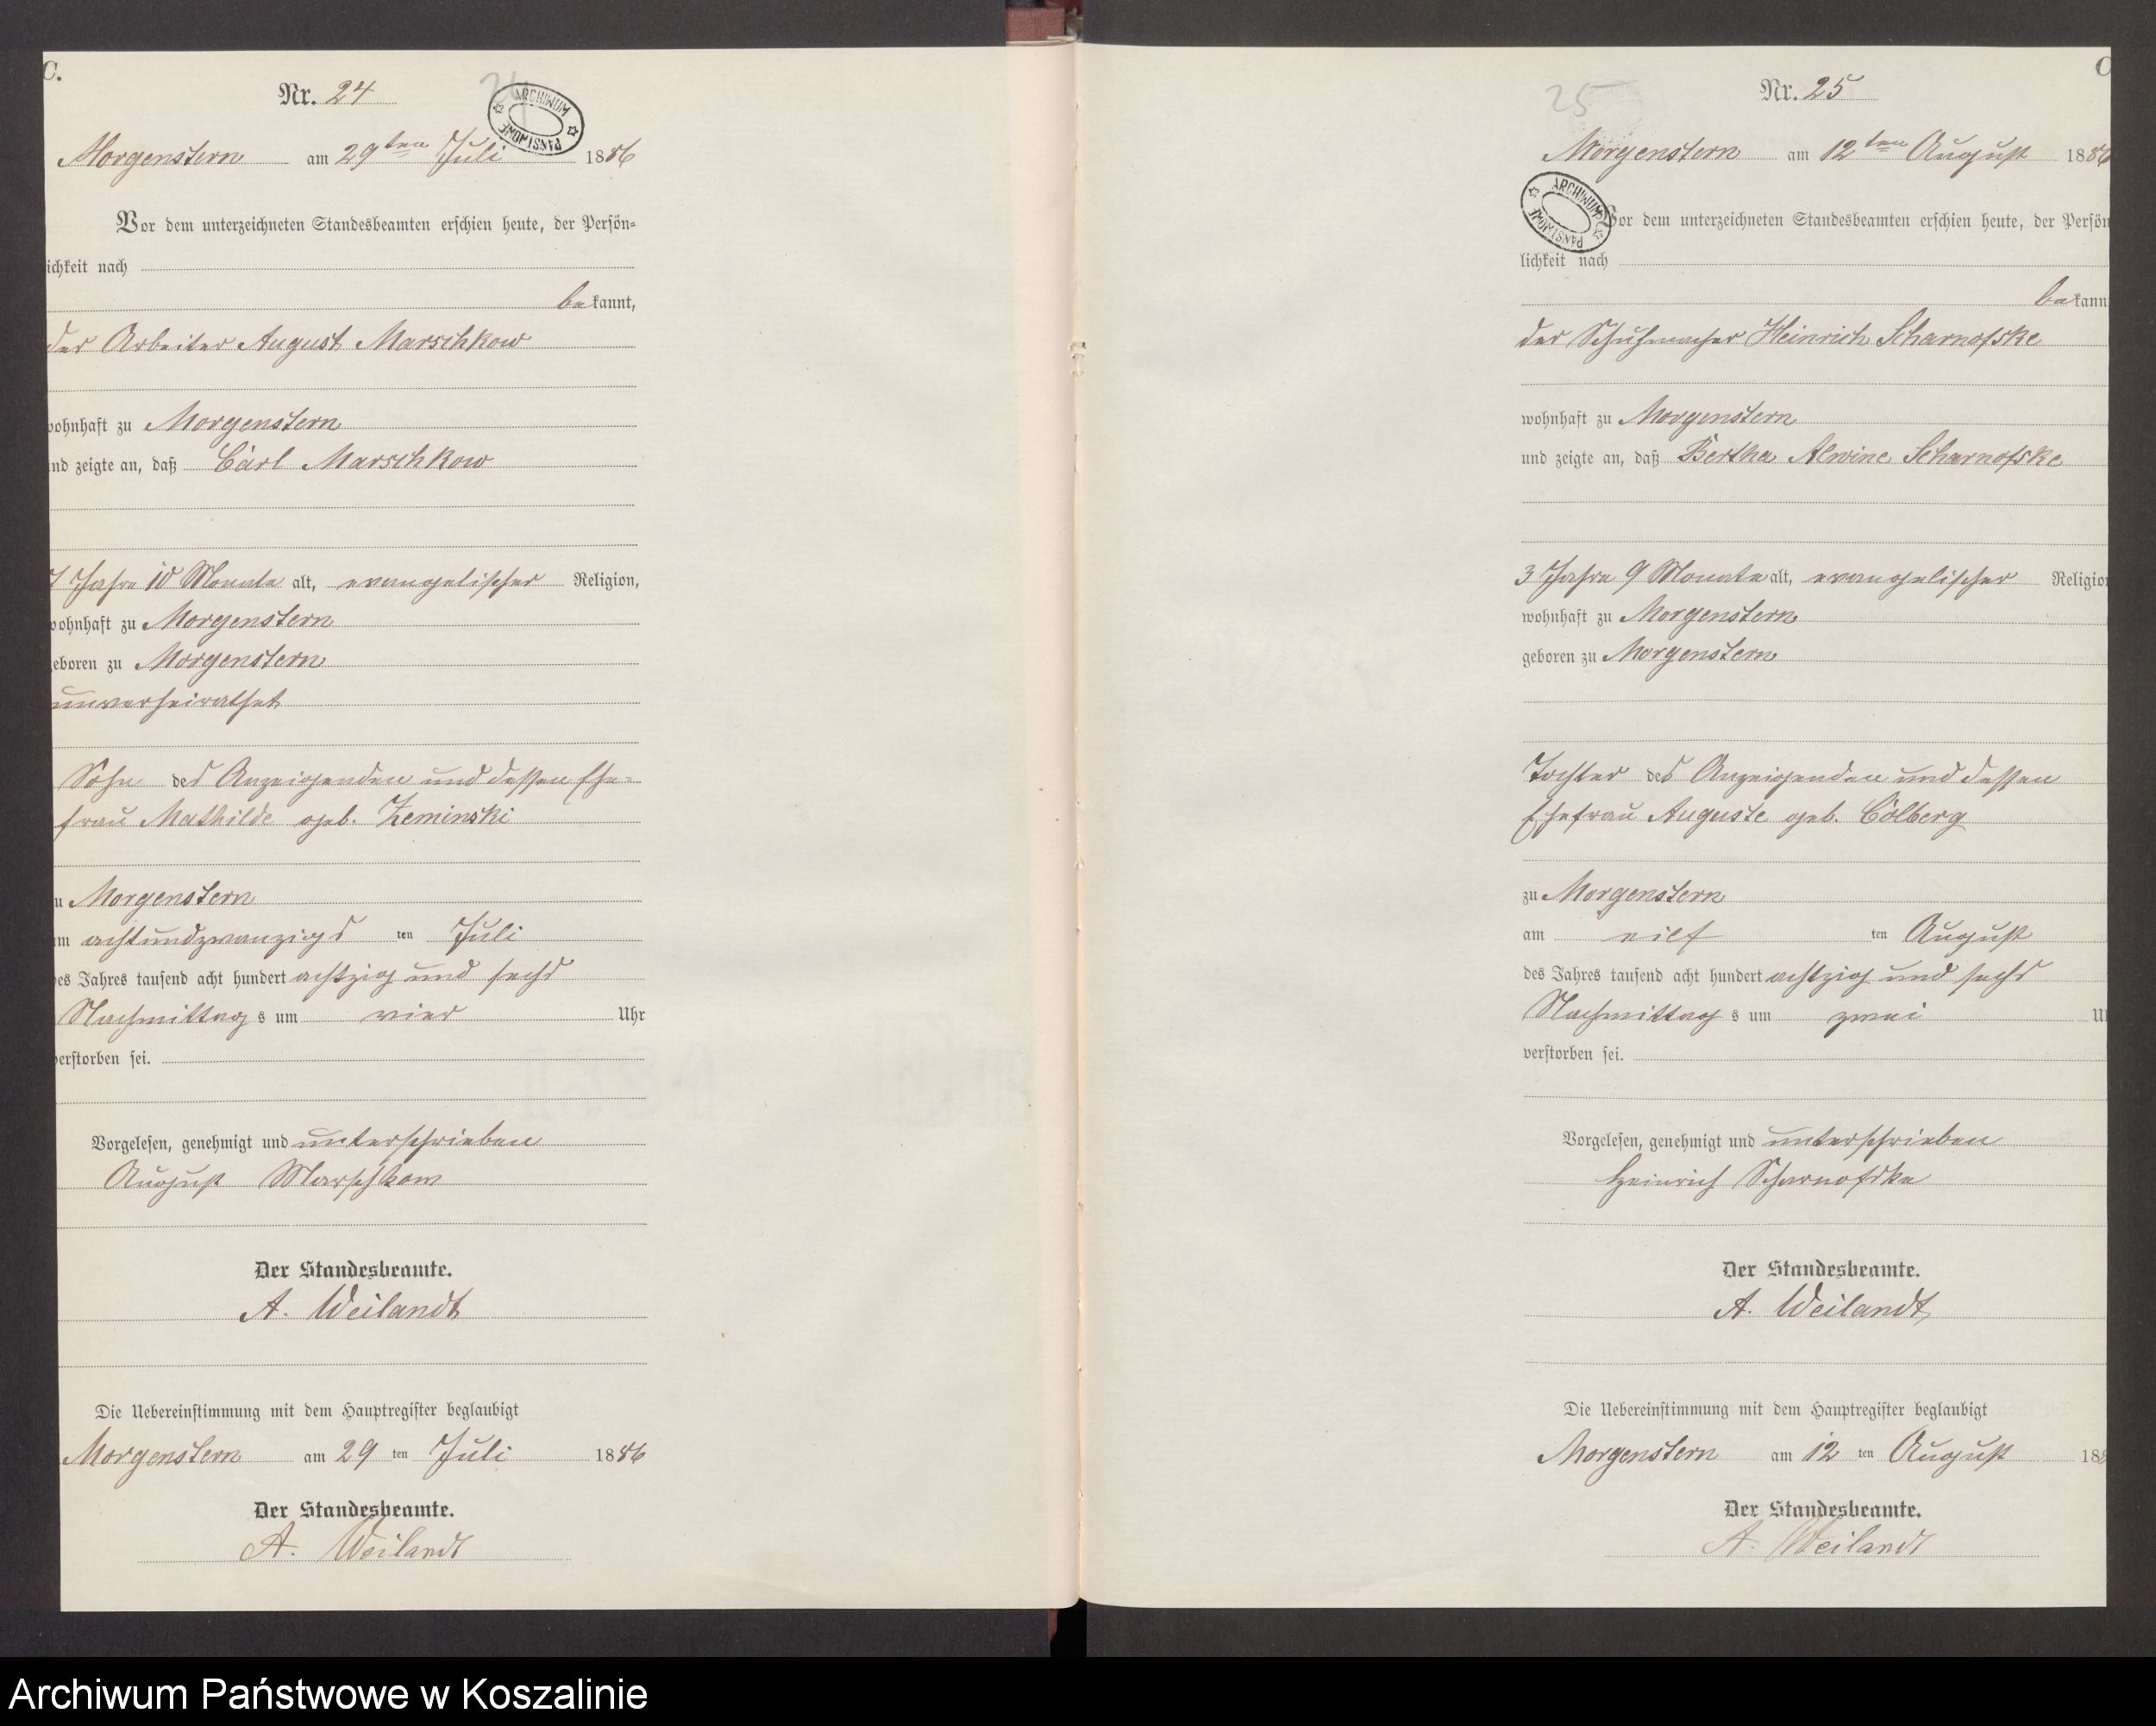 C.
Nr. 24
24
ARCHIWUM PAŃSTWOWE
Morgenstern am 29ten Juli 1886
Vor dem unterzeichneten Standesbeamten erschien heute, der Persön-
ichkeit nach
bekannt,
der Arbeiter August Marschkow
wohnhaft zu Morgenstern
und zeigte an, daß Carl Marschkow
7 Jahre 10 Monate alt, evangelischer Religion,
wohnhaft zu Morgenstern
geboren zu Morgenstern
unverheirathet
Sohn des Anzeigenden und dessen Ehe-
frau Mathilde geb. Zeminski
zu Morgenstern
am achtundzwanzigs ten Juli
des Jahres tausend acht hundert achtzig und sechs
Nachmittag s um vier Uhr
verstorben sei.
Vorgelesen, genehmigt und unterschrieben
August Marschkow
Der Standesbeamte.
A. Weilandt
Die Uebereinstimmung mit dem Hauptregister beglaubigt
Morgenstern am 29 ten Juli 1886
Der Standesbeamte.
A. Weilandt
C
Nr. 25
25
Morgenstern am 12ten August 1886
ARCHIWUM PAŃSTWOWE
Vor dem unterzeichneten Standesbeamten erschien heute, der Persön
lichkeit nach
bekann
der Schuhmacher Heinrich Scharnofske
wohnhaft zu Morgenstern
und zeigte an, daß Bertha Alwine Scharnofske
3 Jahre 9 Monate alt, evangelischer Religio
wohnhaft zu Morgenstern
geboren zu Morgenstern
Tochter des Anzeigenden und dessen
Ehefrau Auguste geb. Cölberg
zu Morgenstern
am eilf ten August
des Jahres tausend acht hundert achtzig und sechs
Nachmittag s um zwei U
verstorben sei.
Vorgelesen, genehmigt und unterschrieben
Heinrich Scharnofske
Der Standesbeamte.
A. Weilandt
Die Uebereinstimmung mit dem Hauptregister beglaubigt
Morgenstern am 12 ten August 188
Der Standesbeamte.
A. Weilandt
Archiwum Państwowe w Koszalinie